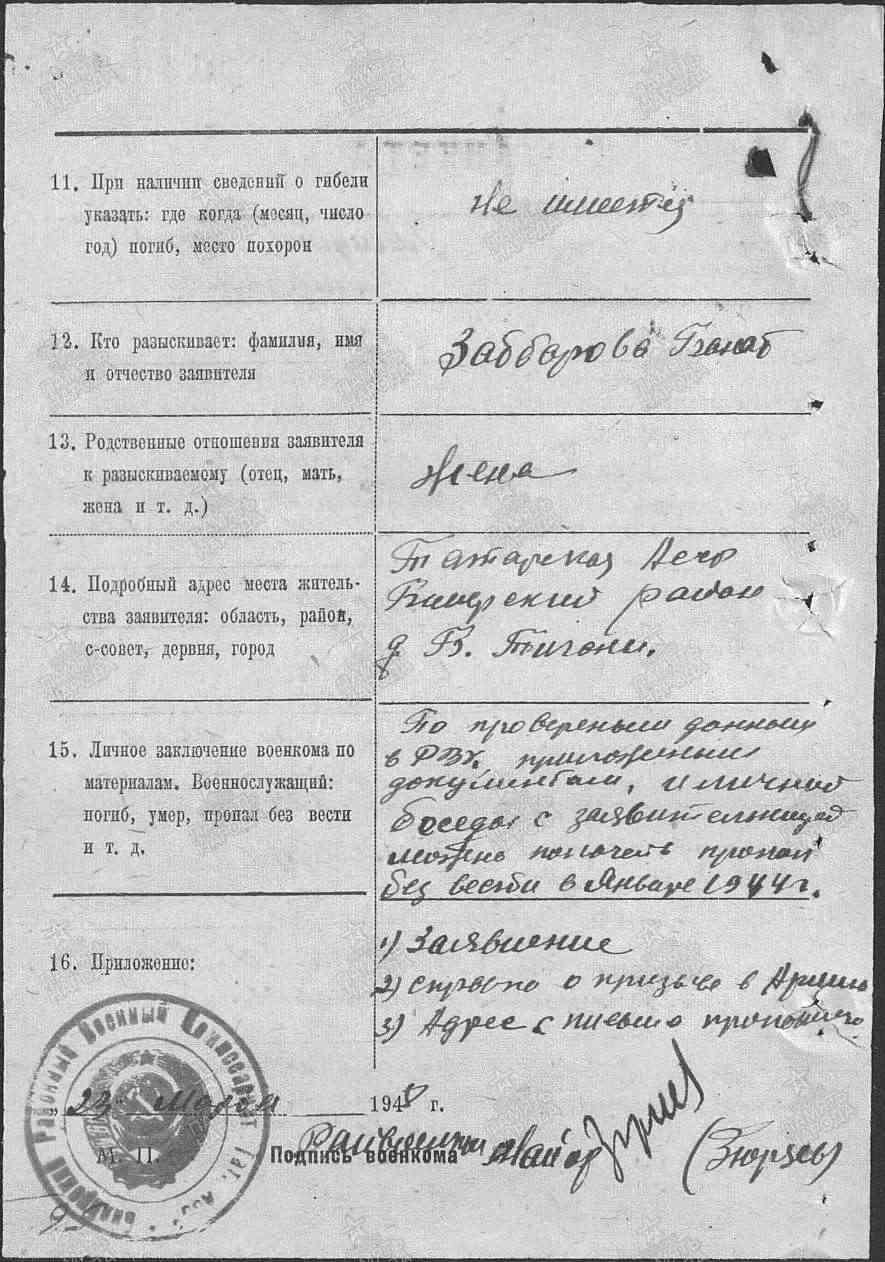 11. При наличии сведений о гибели
указать: где когда (месяц, число
год) погиб, место похорон
Не имеется
12. Кто разыскивает: фамилия, имя
и отчество заявителя
Заббарова
13. Родственные отношения заявителя
к разыскиваемому (отец, мать,
жена и т. д.)
Жена
14. Подробный адрес места житель-
ства заявителя: область, район,
с-совет, дервня, город
Татарская Асср
Билярский район
д. В. Тигани.
15. Личное заключение военкома по
материалам. Военнослужащий:
погиб, умер, пропал без вести
и т. д.
По провереным данным
в РВК, приложенным
документам, и личной
беседы с заявительницей
можно пропал
без вести в Январе 1944 г.
16. Приложение:
1) Заявление
2) справка о призыве в Армию
3) Адрес с письма пропавшего
Билярский Районный Военный Комиссариат Тат. АССР
„23" Марта 1948 г.
М. П.
Подпись военкома
Райвоенком Майор